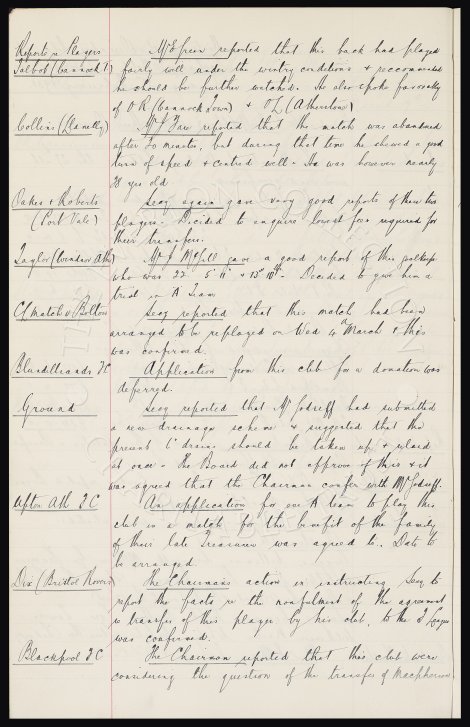 Reports re Players
Talbot (Cannock T.)
Mr E Green reported that this back had played
fairly well under the wintry conditions & recommended
he should be further watched. He also spoke favorably
of O R (Cannock Town) & O L (Atherstone)
Collins (Llanelly)
Mr J Fare reported that the match was abandoned
after 20 minutes, but during that time he showed a good
turn of speed & centred well. He was however nearly
28 yrs old.
Oakes & Roberts
(Port Vale)
Secy again gave very good reports of these two
players. Decided to enquire lowest fees required for
their transfers.
Taylor (Windsor Ath)
Mr J McGill gave a good report of this goalkeeper
who was 22 5' 11" & 13st 10lb. Decided to give him a
trial in A Team
CL match v Bolton
Secy reported that this match had been
arranged to be replayed on Wed 4th March & this
was confirmed.
Blundellsands FC
Application from this club for a donation was
deferred.
Ground
Secy reported that Mr had submitted
a new drainage scheme & suggested that the
present 6" drains should be taken up & relaid
at once. The Board did not approve of this & it
was agreed that the Chairman confer with Mr
Afton Ath F C
An application for our A team to play this
club in a match for the benefit of the family
of their late Treasurer was agreed to. Date to
be arranged.
Dix (Bristol Rovers)
The Chairmans action in instructing Secy to
report the facts re the nonfulment of the agreement
re transfer of this player by his club, to the F League
was confirmed.
Blackpool F C
The Chairman reported that this club were
considering the question of the transfer of Macpherson